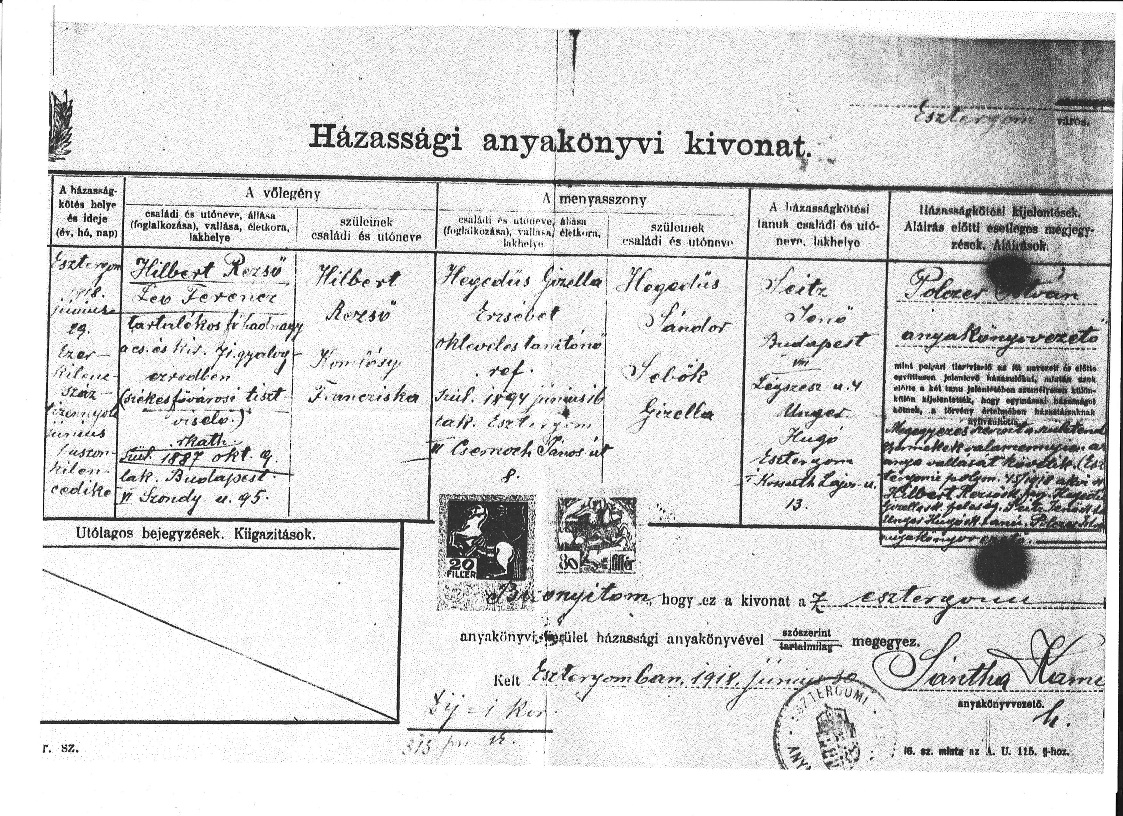 Esztergom város.
Házassági anyakönyvi kivonat.
A házasság-
kötés helye
és ideje
(év, hó, nap)
A vőlegény
családi és utóneve, állása
(foglalkozása), vallása, életkora,
lakhelye
szüleinek
családi és utóneve
A menyasszony
családi és utóneve, állása
(foglalkozása), vallása, életkora,
lakhelye
szüleinek
családi és utóneve
A házasságkötési
tanuk családi és utó-
neve, lakhelye
Házasságkötési kijelentések.
Aláírás előtti esetleges megjegy-
zések. Aláírások.
Esztergom
1918.
június
29.
Ezer-
kilenc-
száz-
tizennyolc
június
huszon-
kilen-
cedike
Hilbert Rezső
Leo Ferencz
tartalékos főhadnagy
a cs. és kir. gyalog
ezredben
(székesfővárosi tiszt
viselő.)
rkath.
szül. 1887 okt. 9
lak. Budapest
VI Szondy u. 95.
Hilbert
Rezső
Komlósy
Francziska
Hegedűs Gizella
Erzsébet
okleveles tanítónő
ref.
szül. 1894 június 16
lak. Esztergom
Csernoch János út
8.
Hegedűs
Sándor
Sebők
Gizella
Seitz
Jenő
Budapest
VII
Légszesz u. 4
Unger
Hugó
Esztergom
Kossuth Lajos u.
13.
Polczer István
anyakönyvvezető
mint polgári tisztviselő az itt nevezett és előtte
együttesen jelenlevő házasulók, miután azok
előtte a két tanu jelenlétében személyesen külön-
külön kijelentették, hogy egymással házasságot
kötnek, a törvény értelmében házastársaknak
nyilvánította.
Megegyezés szerint a születendő
gyermekek valamennyien az
anya vallását követik. (Esz
tergomi polgm. 45/1918
Hilbert Rezső Hegedűs
Gizella Seitz Jenő
Unger Hugó Polczer István
anyakönyvvezető
Utólagos bejegyzések. Kiigazítások.
20
FILLÉR
80 fillér
Bizonyítom, hogy ez a kivonat a z esztergomi
anyakönyvi kerület házassági anyakönyvével szószerint
tartalmilag megegyez.
Kelt Esztergomban, 1918. június 30
Sántha
anyakönyvvezető.
h.
Díj 1 kor.
ESZTERGOMI
r. sz.
16. sz. minta az A. U. 115. §-hoz.